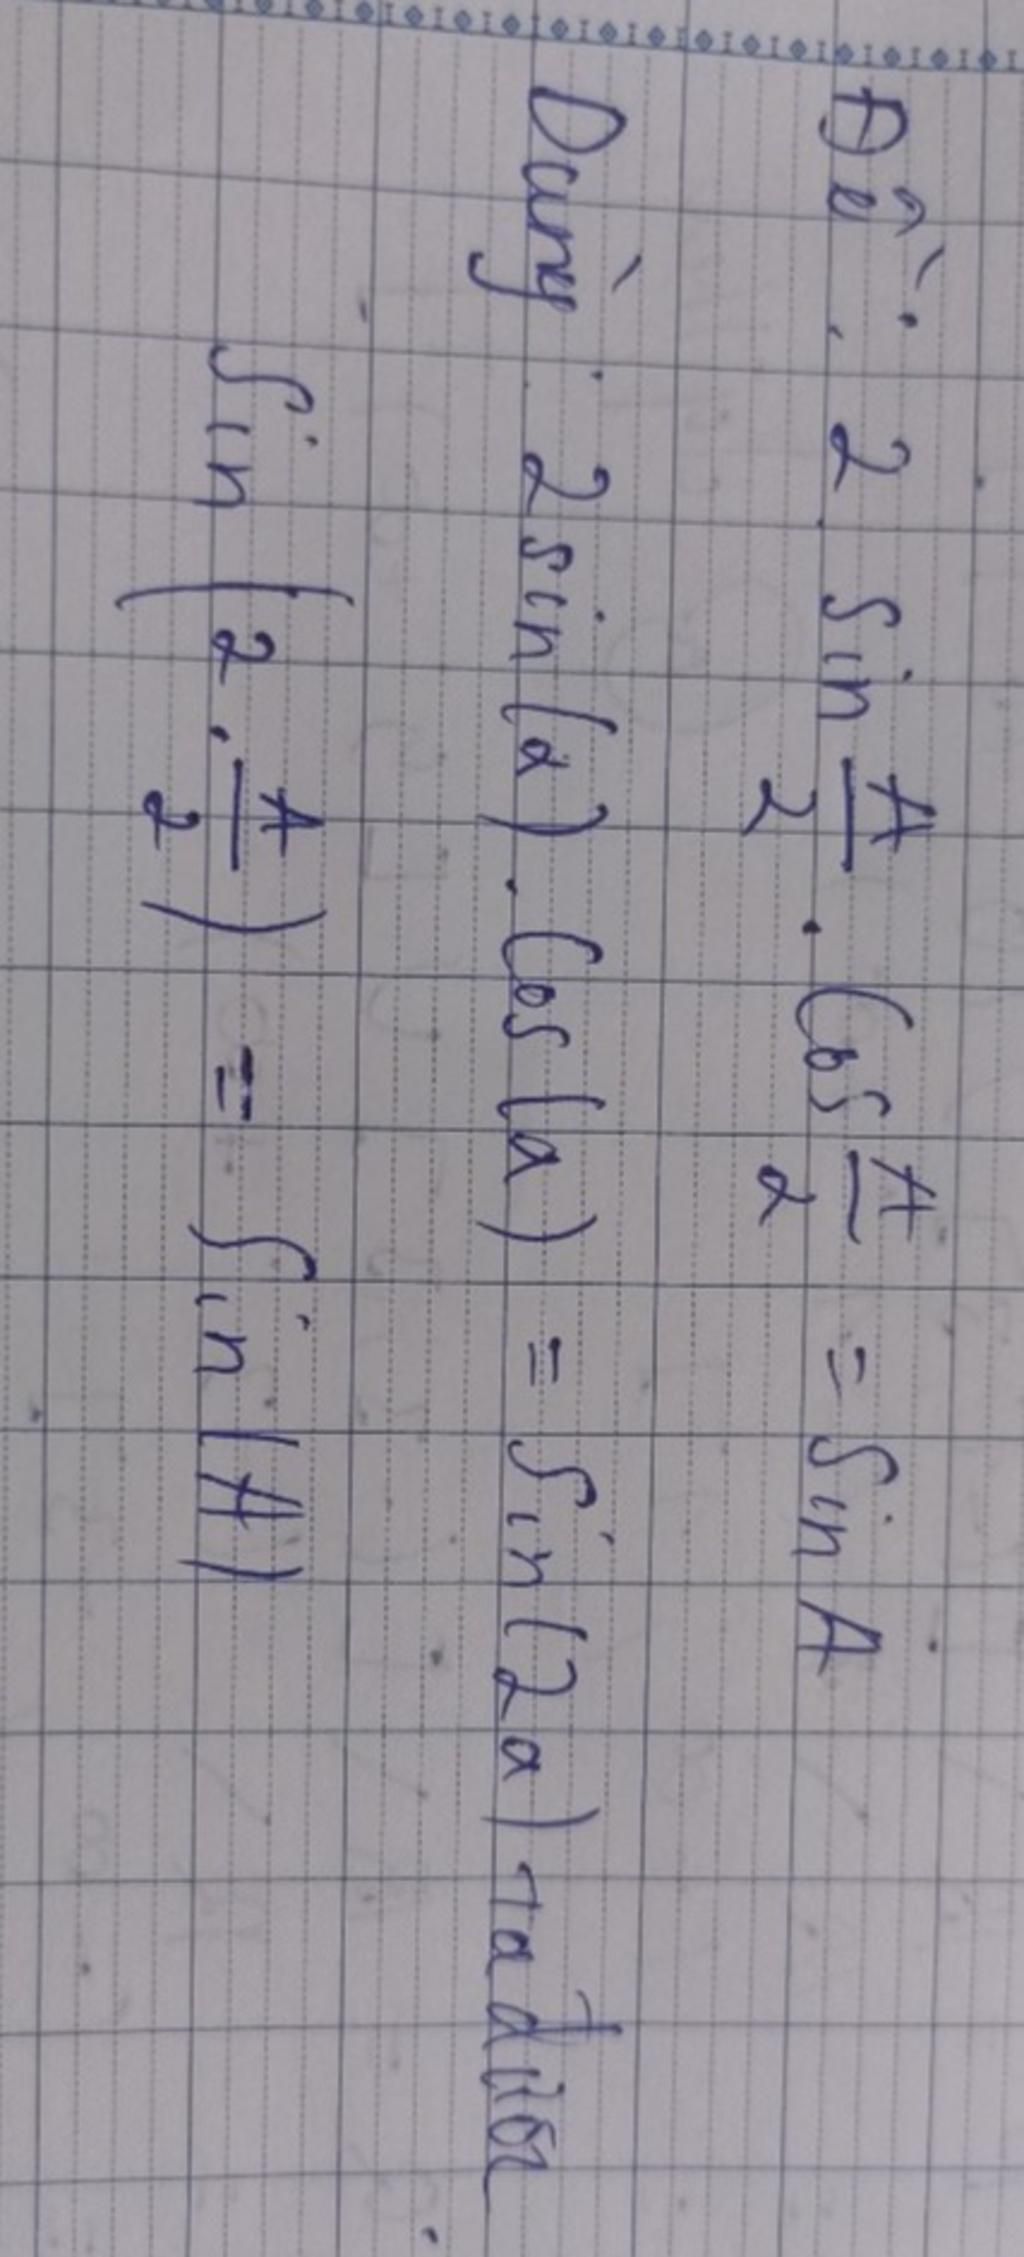 Đề: 2 sin A/2 . Cos A/2 = Sin A
Dùng: 2sin(a).Cos(a) = Sin(2a) ta được
Sin (2.A/2) = Sin(A)